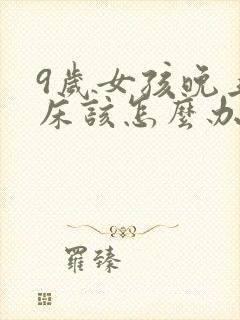 9歲女孩晚
床該怎麼办
羅臻